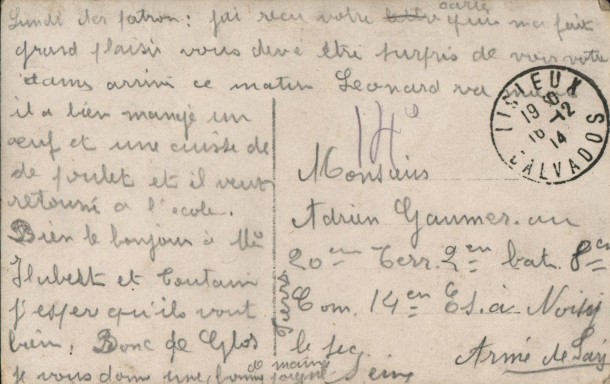 Lundi cher patron : jai recu votre carte qui ma fait
grand plaisir vous deve être surpris de voir votre
dame arrivé ce matin Leonard va mieux
il a bien mangé un
œuf et une cuisse de
de poulet et il veut
retourné a l'ecole.
Bien le bonjour à Mr
Hubert et Coutain
j'esper qu'ils vont
bien. Bonc de Glos
je vous donne une bonne poigné
de main
Pierre
14e
LISIEUX
19 50
16 - 12
14
CALVADOS
Monsieur
Adrien Gaumer au
20em Terr. 2em bat. 8em
Com. 14em Es. à Noisy
le sec
Seine
Armé de Paris